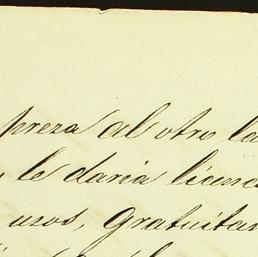 preza al otro la
, le daria licenc
usos, gratuitam